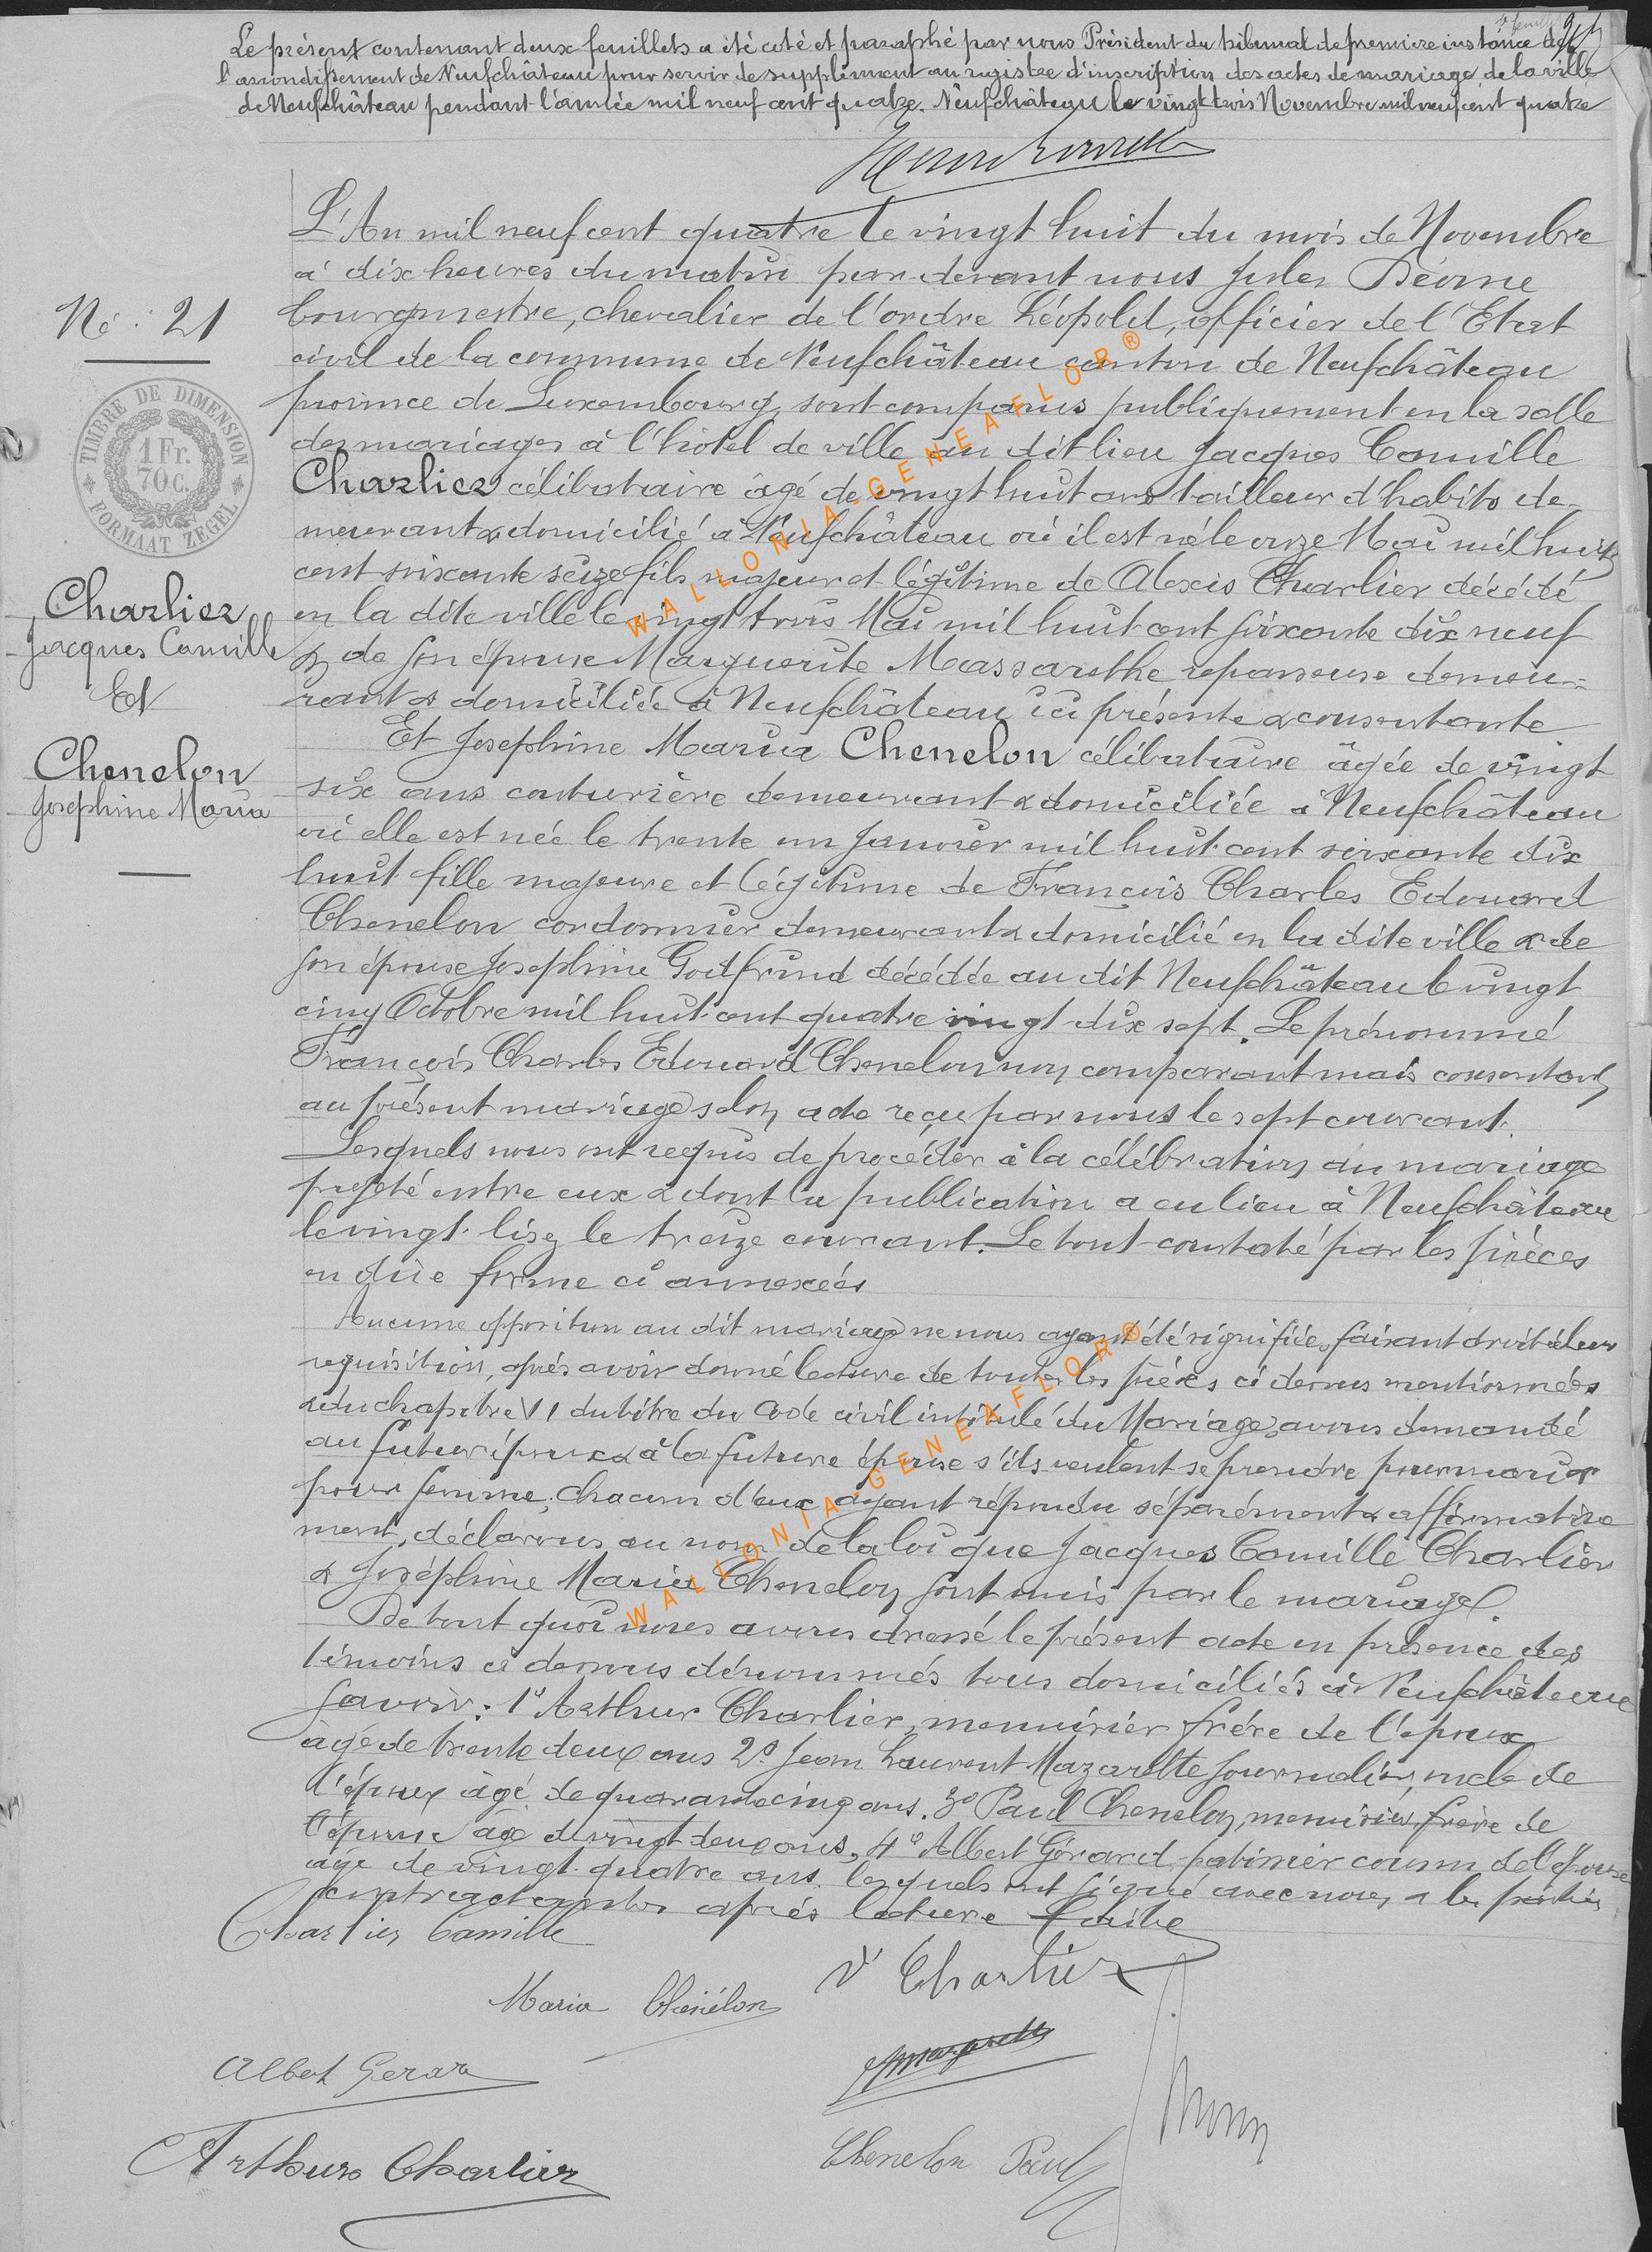 Le présent contenant deux feuillets a été coté et paraphé par nous Président du tribunal de première instance de
l'arrondissement de Neufchâteau pour servir de supplément au registre d'inscription des actes de mariage de la ville
de Neufchâteau pendant l'année mil neuf cent quatre. Neufchâteau le vingt trois Novembre mil neuf cent quatre
L'An mil neuf cent quatre le vingt huit du mois de Novembre
à dix heures du matin par devant nous Jules
bourgmestre, chevalier de l'ordre Léopold, officier de l'Etat
civil de la commune de Neufchâteau canton de Neufchâteau
province de Luxembourg, sont comparus publiquement en la salle
des mariages à l'hôtel de ville au dit lieu Jacques Camille
Charlier célibataire âgé de vingt huit ans tailleur d'habits de-
meurant & domicilié à Neufchâteau où il est né le onze Mai mil huit
cent soixante seize fils majeur et légitime de Alexis Charlier décédé
en la dite ville le vingt trois Mai mil huit cent soixante dix neuf
& de son épouse Marguerite Massarethe repasseuse demeu-
rant & domiciliée à Neufchâteau ici présente & consentante
Et Josephine Maria Chenelon célibataire âgée de vingt
six ans couturière demeurant & domiciliée à Neufchâteau
où elle est née le trente un Janvier mil huit cent soixante dix
huit fille majeure et légitime de François Charles Edouard
Chenelon cordonnier demeurant & domicilié en la dite ville & de
son épouse Josephine Godfrind décédée au dit Neufchâteau le vingt
cinq Octobre mil huit cent quatre vingt dix sept. Le prénommé
François Charles Edouard Chenelon non comparant mais consentant
au présent mariage selon acte reçu par nous le sept courant.
Lesquels nous ont requis de procéder à la célébration du mariage
projeté entre eux & dont la publication a eu lieu à Neufchâteau
le vingt lisez le treize courant. Le tout constaté par les pièces
en due forme ci annexées
Aucune opposition au dit mariage ne nous ayant été signifiée, faisant droit à leur
requisition, après avoir donné lecture de toutes les pièces ci dessus mentionnées
& du chapitre VI du titre du Code civil intitulé du Mariage, avons demandé
au futur époux & à la future épouse s'ils veulent se prendre pour mari &
pour femme, chacun d'eux ayant répondu séparément & affirmative
ment, déclarons au nom de la loi que Jacques Camille Charlier
& Joséphine Maria Chenelon sont unis par le mariage.
De tout quoi nous avons dressé le présent acte en présence des
témoins ci dessous dénommés tous domiciliés à Neufchâteau
Savoir: 1° Arthur Charlier, menuisier frère de l'époux
âgé de trente deux ans 2° Jean Laurent Mazarelte journalier, oncle de
l'époux âgé de quarante cinq ans. 3° Paul Chenelon, menuisier, frère de
l'épouse âgé de vingt deux ans, 4° Albert Gérard, patissier cousin de l'épouse
âgé de vingt quatre ans. lesquels ont signé avec nous & les parties
contractantes après lecture faite
Charlier Camille
V° Charlier
Maria Chenélon
Albert Gerard
Chenelon Paul
Arthur Charlier
N° 21
TIMBRE DE DIMENSION
1 Fr.
70 C.
FORMAAT ZEGEL
Charlier
Jacques Camille
Et
Chenelon
Josephine Maria
WALLONIA-GENEAFLOR®
WALLONIA-GENEAFLOR®